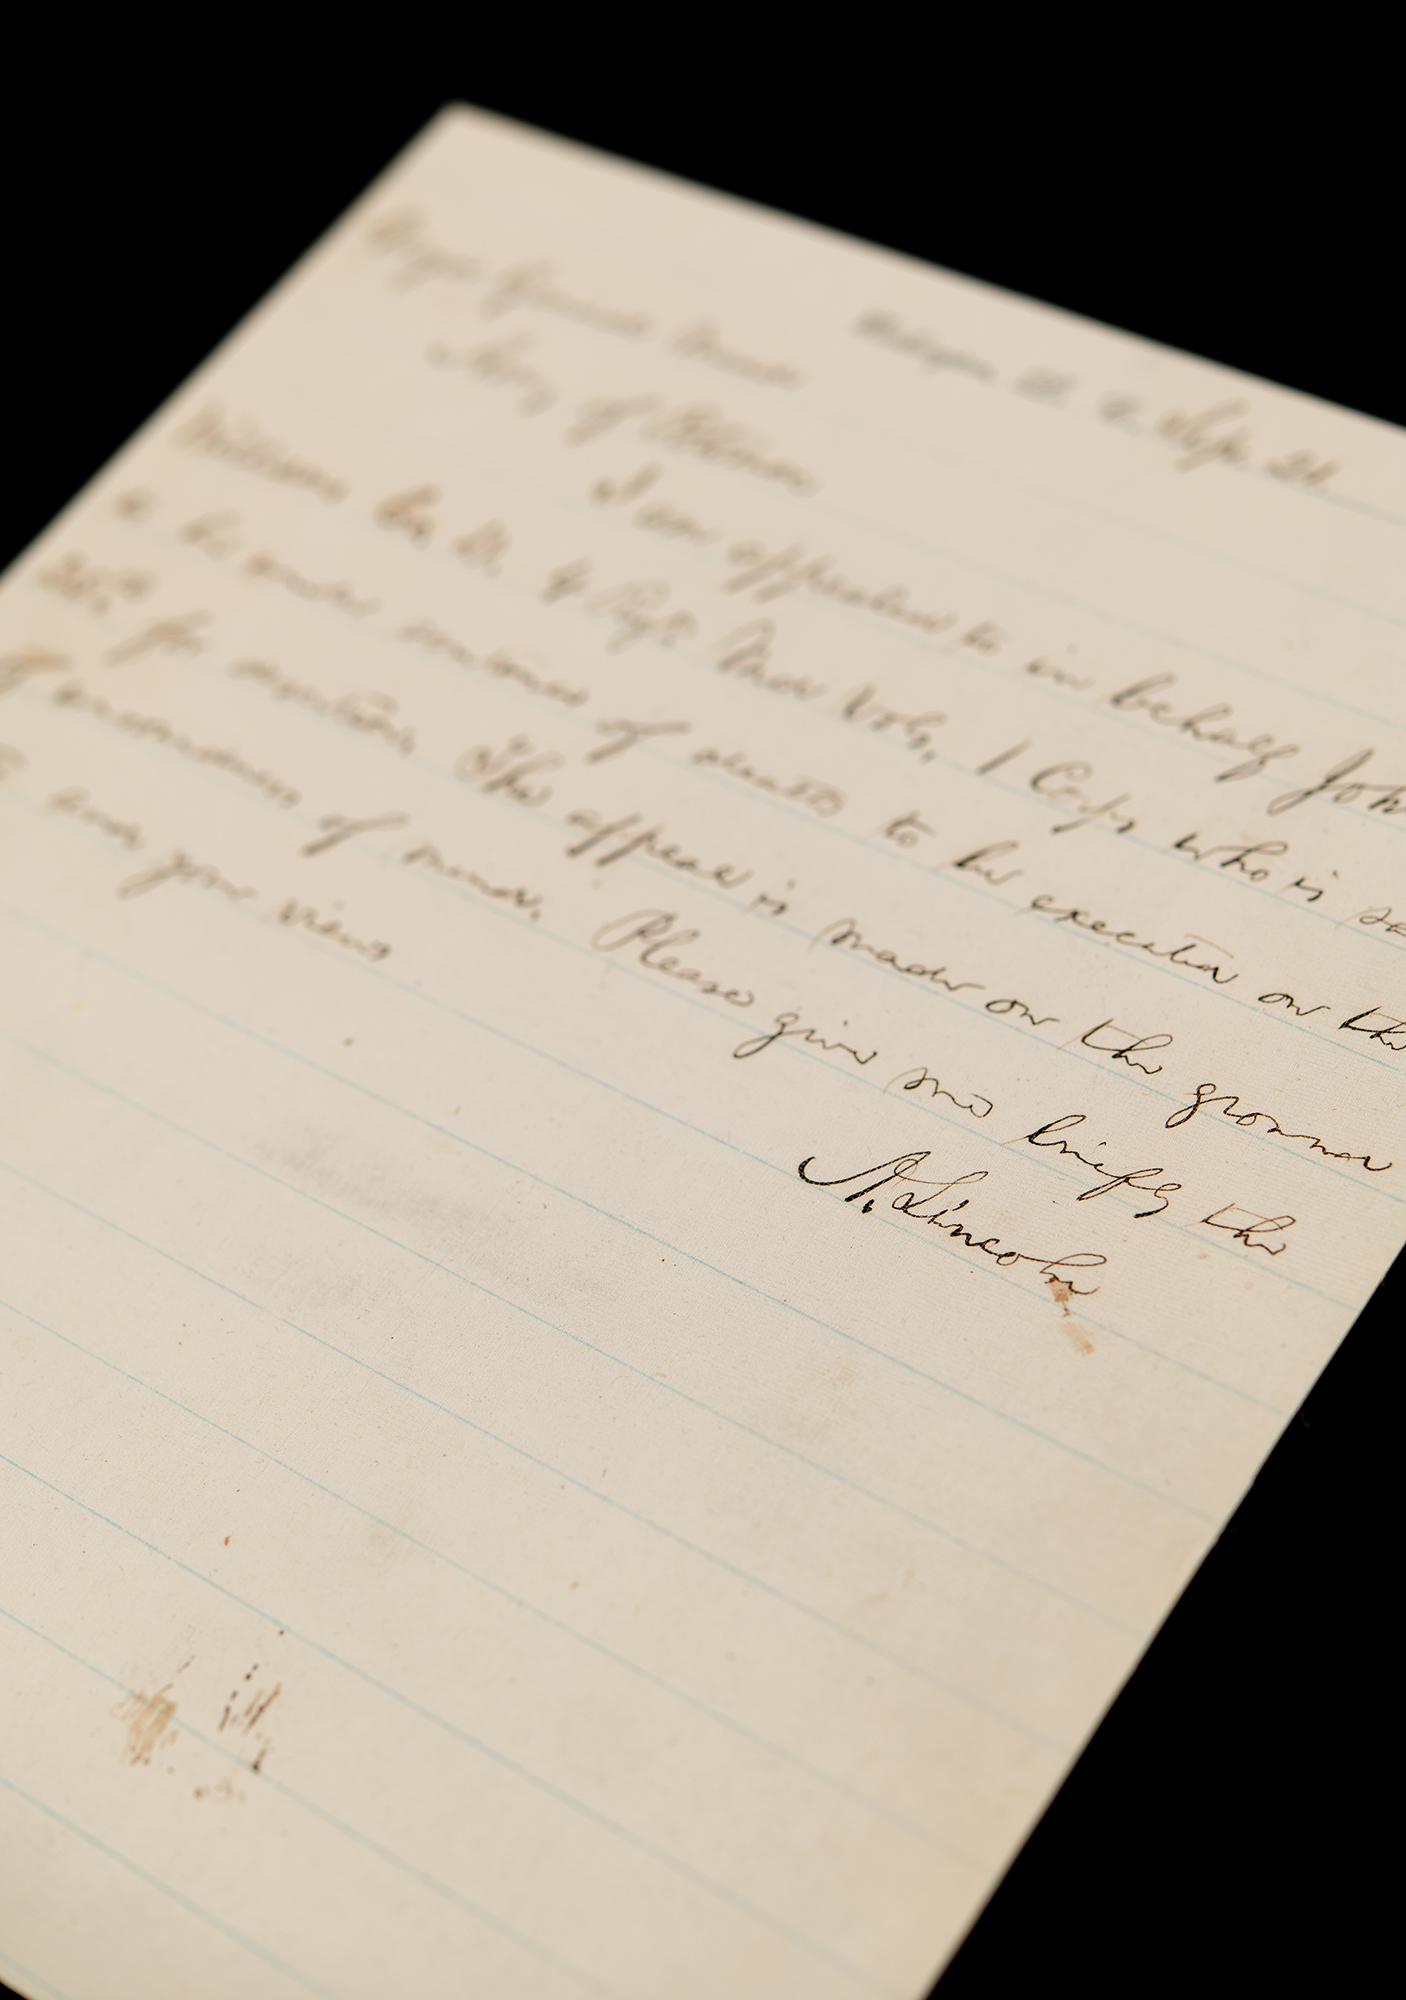 Major General Meade
Army of Potomac
I am appealed to in behalf John
Williams Co. D. 4 Regt. Md Vols. 1 Corps who is
to be under sentence of death to be executed on the
25th for desertion. The appeal is made on the ground
of unsoundness of mind. Please give me briefly the
and your views
A. Lincoln